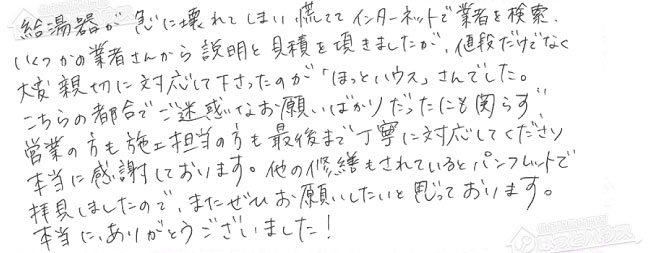 給湯器が急に壊れてしまい慌ててインターネットで業者を検索、
いくつかの業者さんから説明と見積を頂きましたが、値段だけでなく
大変親切に対応して下さったのが「ほっとハウス」さんでした。
こちらの都合でご迷惑なお願いばかりだったにも関らず
営業の方も施工担当の方も最後まで丁寧に対応してくださり
本当に感謝しております。他の修繕もされているとパンフレットで
拝見しましたので、またぜひお願いしたいと思っております。
本当に、ありがとうございました！